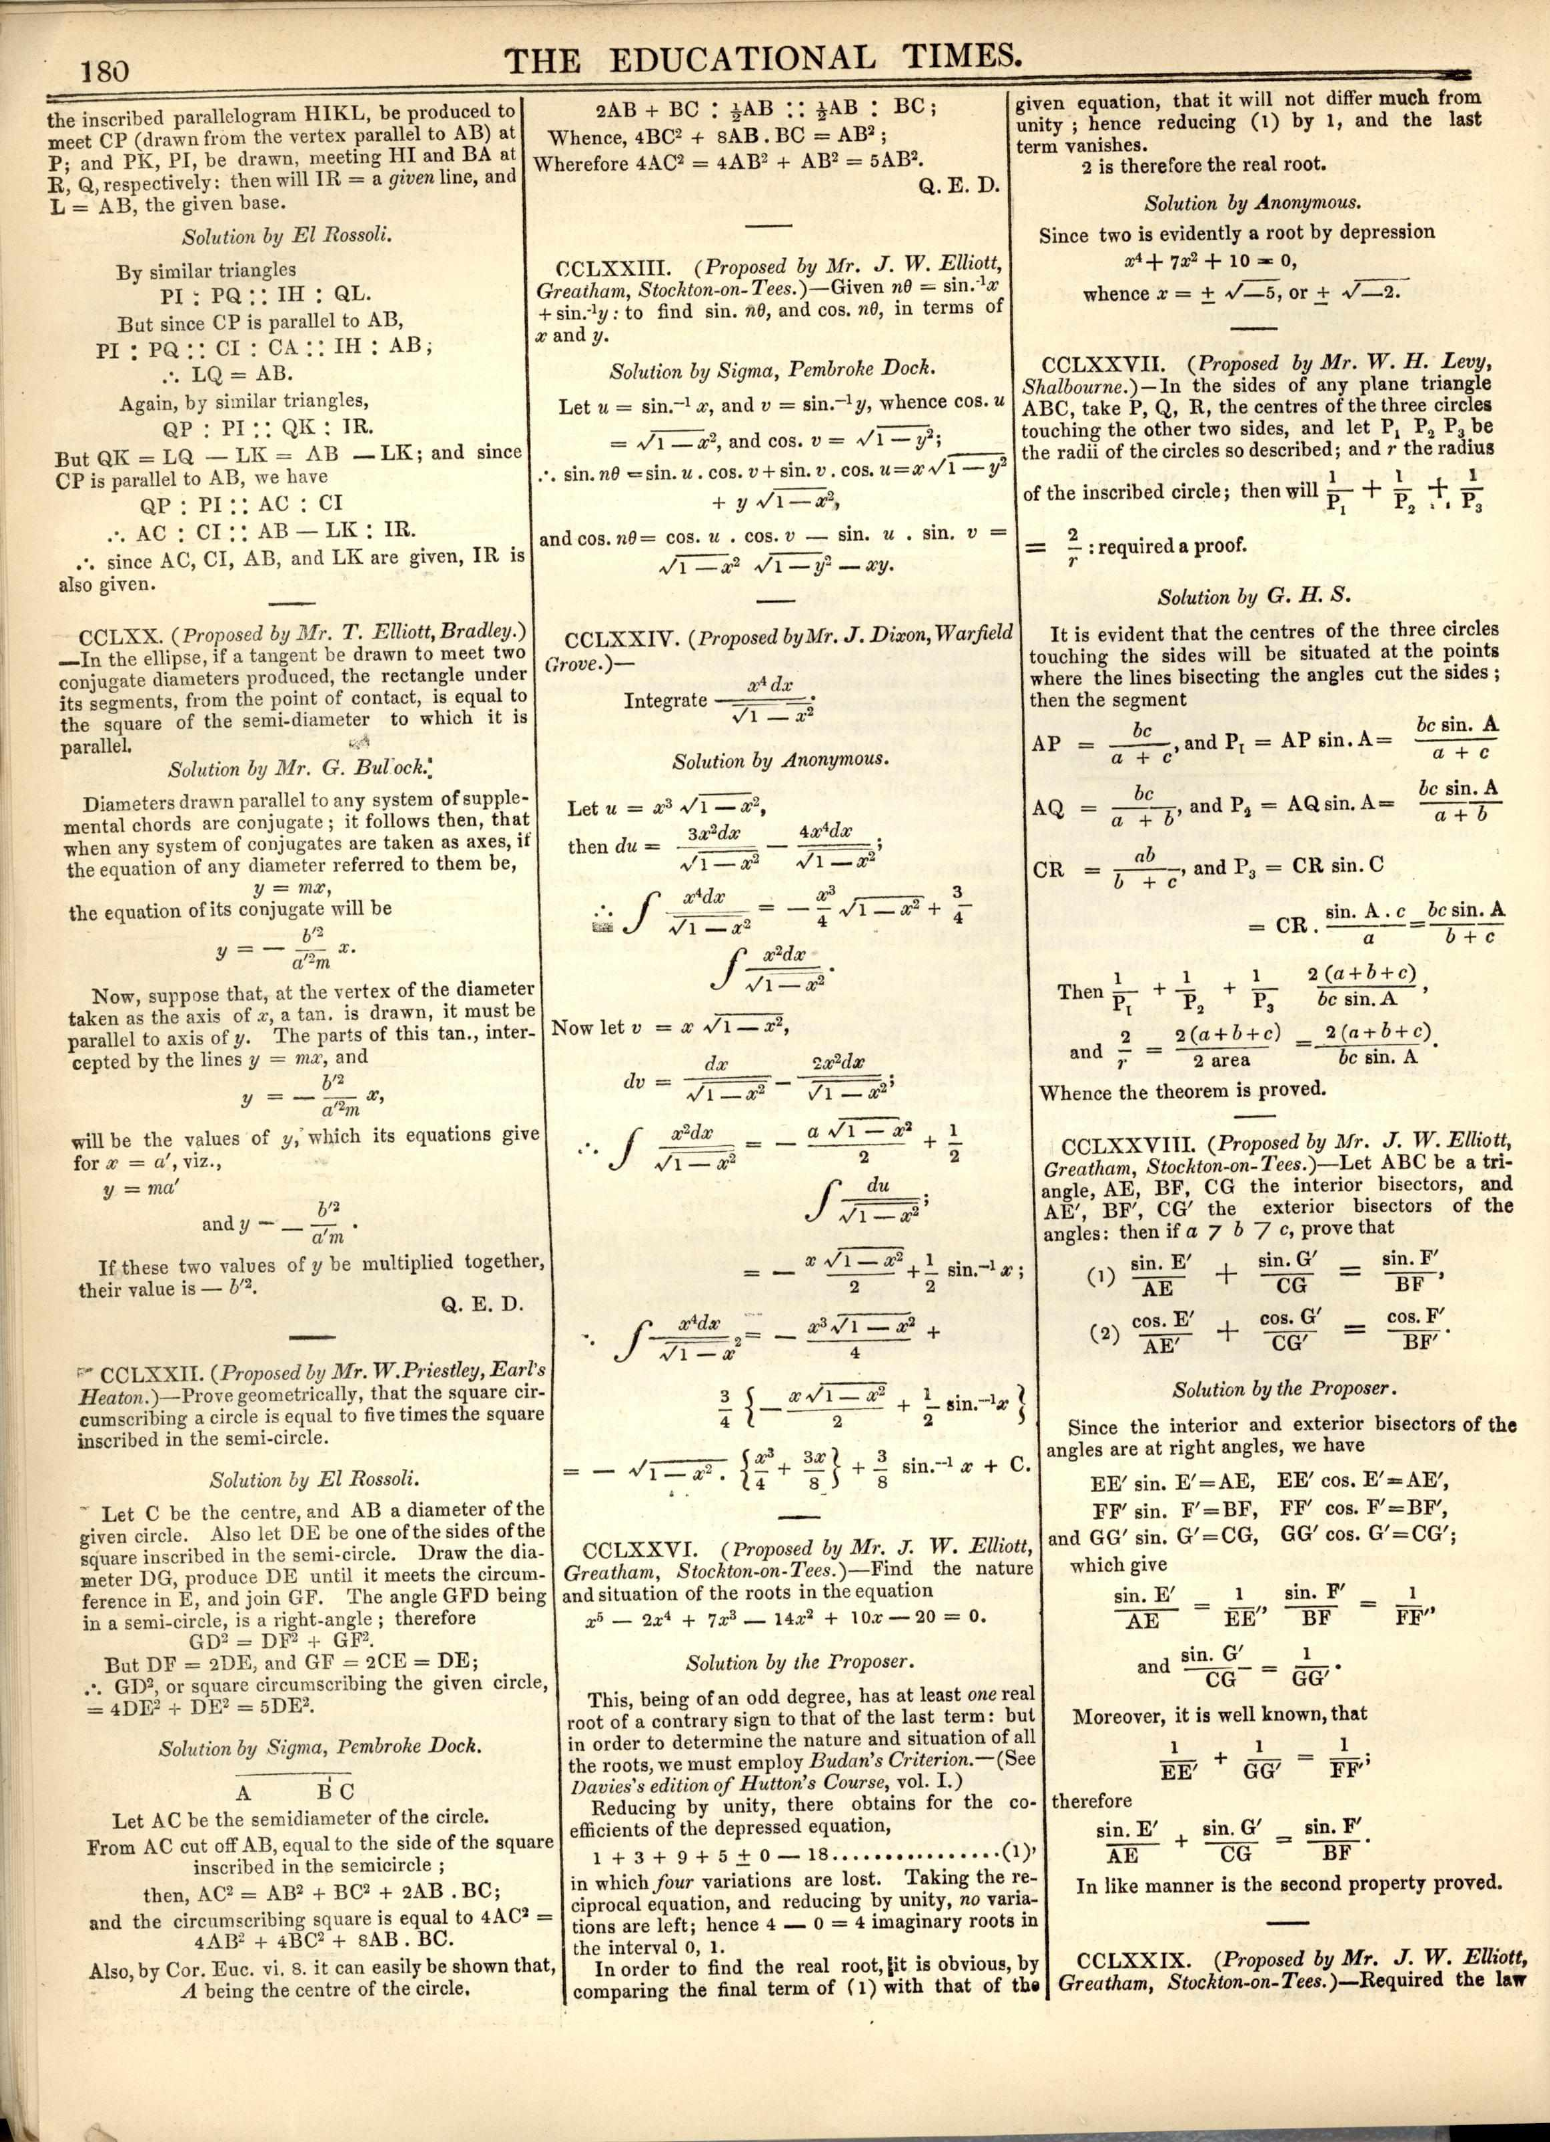 180
THE EDUCATIONAL TIMES.
the inscribed parallelogram HIKL, be produced to
meet CP (drawn from the vertex parallel to AB) at
P; and PK, PI, be drawn, meeting HI and BA at
R, Q, respectively: then will IR = a given line, and
L = AB, the given base.
Solution by El Rossoli.
By similar triangles
PI : PQ :: IH : QL.
But since CP is parallel to AB,
PI : PQ :: CI : CA :: IH : AB;
∴ LQ = AB.
Again, by similar triangles,
QP : PI :: QK : IR.
But QK = LQ — LK = AB — LK; and since
CP is parallel to AB, we have
QP : PI :: AC : CI
∴ AC : CI :: AB — LK : IR.
∴ since AC, CI, AB, and LK are given, IR is
also given.
CCLXX. (Proposed by Mr. T. Elliott, Bradley.)
—In the ellipse, if a tangent be drawn to meet two
conjugate diameters produced, the rectangle under
its segments, from the point of contact, is equal to
the square of the semi-diameter to which it is
parallel.
Solution by Mr. G. Bullock.
Diameters drawn parallel to any system of supple-
mental chords are conjugate; it follows then, that
when any system of conjugates are taken as axes, if
the equation of any diameter referred to them be,
y = mx,
the equation of its conjugate will be
y = — b′²/a′²m x.
Now, suppose that, at the vertex of the diameter
taken as the axis of x, a tan. is drawn, it must be
parallel to axis of y. The parts of this tan., inter-
cepted by the lines y = mx, and
y = — b′²/a′²m x,
will be the values of y, which its equations give
for x = a′, viz.,
y = ma′
and y — — b′²/a′m .
If these two values of y be multiplied together,
their value is — b′².
Q. E. D.
CCLXXII. (Proposed by Mr. W. Priestley, Earl's
Heaton.)—Prove geometrically, that the square cir-
cumscribing a circle is equal to five times the square
inscribed in the semi-circle.
Solution by El Rossoli.
Let C be the centre, and AB a diameter of the
given circle. Also let DE be one of the sides of the
square inscribed in the semi-circle. Draw the dia-
meter DG, produce DE until it meets the circum-
ference in E, and join GF. The angle GFD being
in a semi-circle, is a right-angle; therefore
GD² = DF² + GF².
But DF = 2DE, and GF = 2CE = DE;
∴ GD², or square circumscribing the given circle,
= 4DE² + DE² = 5DE².
Solution by Sigma, Pembroke Dock.
A B C
Let AC be the semidiameter of the circle.
From AC cut off AB, equal to the side of the square
inscribed in the semicircle;
then, AC² = AB² + BC² + 2AB . BC;
and the circumscribing square is equal to 4AC² =
4AB² + 4BC² + 8AB . BC.
Also, by Cor. Euc. vi. 8. it can easily be shown that,
A being the centre of the circle,
2AB + BC : ½AB :: ½AB : BC;
Whence, 4BC² + 8AB . BC = AB²;
Wherefore 4AC² = 4AB² + AB² = 5AB².
Q. E. D.
CCLXXIII. (Proposed by Mr. J. W. Elliott,
Greatham, Stockton-on-Tees.)—Given nθ = sin.⁻¹x
+ sin.⁻¹y: to find sin. nθ, and cos. nθ, in terms of
x and y.
Solution by Sigma, Pembroke Dock.
Let u = sin.⁻¹ x, and v = sin.⁻¹ y, whence cos. u
= √1 — x², and cos. v = √1 — y²;
∴ sin. nθ = sin. u . cos. v + sin. v . cos. u = x √1 — y²
+ y √1 — x²,
and cos. nθ = cos. u . cos. v — sin. u . sin. v =
√1 — x² √1 — y² — xy.
CCLXXIV. (Proposed by Mr. J. Dixon, Warfield
Grove.)—
Integrate x⁴ dx/√1 — x².
Solution by Anonymous.
Let u = x³ √1 — x²,
then du = 3x²dx/√1 — x² — 4x⁴dx/√1 — x²;
∴ ∫ x⁴dx/√1 — x² = — x³/4 √1 — x² + 3/4
∫ x²dx/√1 — x².
Now let v = x √1 — x²,
dv = dx/√1 — x² — 2x²dx/√1 — x²;
∴ ∫ x²dx/√1 — x² = — a √1 — x²/2 + 1/2
∫ du/√1 — x²;
= — x √1 — x²/2 + 1/2 sin.⁻¹ x;
∴ ∫ x⁴dx/√1 — x² = — x³ √1 — x²/4 +
3/4 {— x √1 — x²/2 + 1/2 sin.⁻¹x}
= — √1 — x² . {x³/4 + 3x/8} + 3/8 sin.⁻¹ x + C.
CCLXXVI. (Proposed by Mr. J. W. Elliott,
Greatham, Stockton-on-Tees.)—Find the nature
and situation of the roots in the equation
x⁵ — 2x⁴ + 7x³ — 14x² + 10x — 20 = 0.
Solution by the Proposer.
This, being of an odd degree, has at least one real
root of a contrary sign to that of the last term: but
in order to determine the nature and situation of all
the roots, we must employ Budan's Criterion.—(See
Davies's edition of Hutton's Course, vol. I.)
Reducing by unity, there obtains for the co-
efficients of the depressed equation,
1 + 3 + 9 + 5 ± 0 — 18.................(1),
in which four variations are lost. Taking the re-
ciprocal equation, and reducing by unity, no varia-
tions are left; hence 4 — 0 = 4 imaginary roots in
the interval 0, 1.
In order to find the real root, it is obvious, by
comparing the final term of (1) with that of the
given equation, that it will not differ much from
unity; hence reducing (1) by 1, and the last
term vanishes.
2 is therefore the real root.
Solution by Anonymous.
Since two is evidently a root by depression
x⁴ + 7x² + 10 = 0,
whence x = ± √—5, or ± √—2.
CCLXXVII. (Proposed by Mr. W. H. Levy,
Shalbourne.)—In the sides of any plane triangle
ABC, take P, Q, R, the centres of the three circles
touching the other two sides, and let P₁ P₂ P₃ be
the radii of the circles so described; and r the radius
of the inscribed circle; then will 1/P₁ + 1/P₂ + 1/P₃
= 2/r : required a proof.
Solution by G. H. S.
It is evident that the centres of the three circles
touching the sides will be situated at the points
where the lines bisecting the angles cut the sides;
then the segment
AP = bc/a + c, and P₁ = AP sin. A = bc sin. A/a + c
AQ = bc/a + b, and P₂ = AQ sin. A = bc sin. A/a + b
CR = ab/b + c, and P₃ = CR sin. C
= CR . sin. A . c/a = bc sin. A/b + c
Then 1/P₁ + 1/P₂ + 1/P₃ 2 (a+b+c)/bc sin. A,
and 2/r = 2 (a+b+c)/2 area = 2 (a+b+c)/bc sin. A.
Whence the theorem is proved.
CCLXXVIII. (Proposed by Mr. J. W. Elliott,
Greatham, Stockton-on-Tees.)—Let ABC be a tri-
angle, AE, BF, CG the interior bisectors, and
AE′, BF′, CG′ the exterior bisectors of the
angles: then if a 7 b 7 c, prove that
(1) sin. E′/AE + sin. G′/CG = sin. F′/BF,
(2) cos. E′/AE′ + cos. G′/CG′ = cos. F′/BF′.
Solution by the Proposer.
Since the interior and exterior bisectors of the
angles are at right angles, we have
EE′ sin. E′=AE, EE′ cos. E′=AE′,
FF′ sin. F′=BF, FF′ cos. F′=BF′,
and GG′ sin. G′=CG, GG′ cos. G′=CG′;
which give
sin. E′/AE = 1/EE′, sin. F′/BF = 1/FF′,
and sin. G′/CG = 1/GG′.
Moreover, it is well known, that
1/EE′ + 1/GG′ = 1/FF′;
therefore
sin. E′/AE + sin. G′/CG = sin. F′/BF.
In like manner is the second property proved.
CCLXXIX. (Proposed by Mr. J. W. Elliott,
Greatham, Stockton-on-Tees.)—Required the law